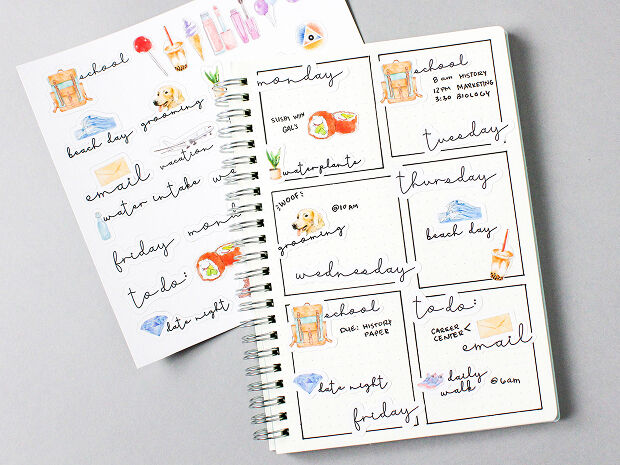 school
grooming
beach day
vacation
email
water intake
friday
to do:
date night
monday
SUSHI WITH
GAL'S
water plants
school
8 am HISTORY
12PM MARKETING
3:30 BIOLOGY
tuesday
:WOOF:
@10 AM
grooming
wednesday
thursday
beach day
school
DUE: HISTORY
PAPER
date night
friday
to do:
CAREER
CENTER <
email
daily
walk @ 6am